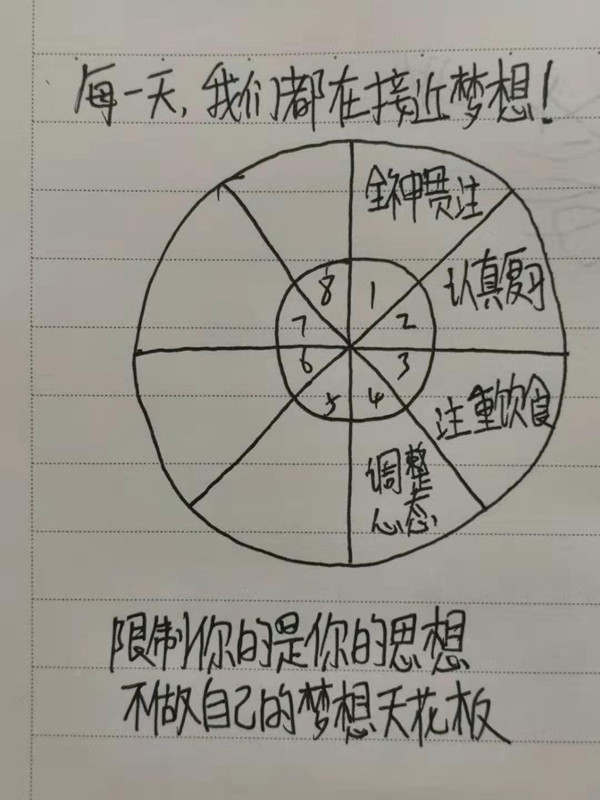 每一天,我们都在接近梦想!
全神贯注
认真复习
8 1
7 2
6 3
5 4
注重饮食
调整
心态
限制你的是你的思想
不做自己的梦想天花板